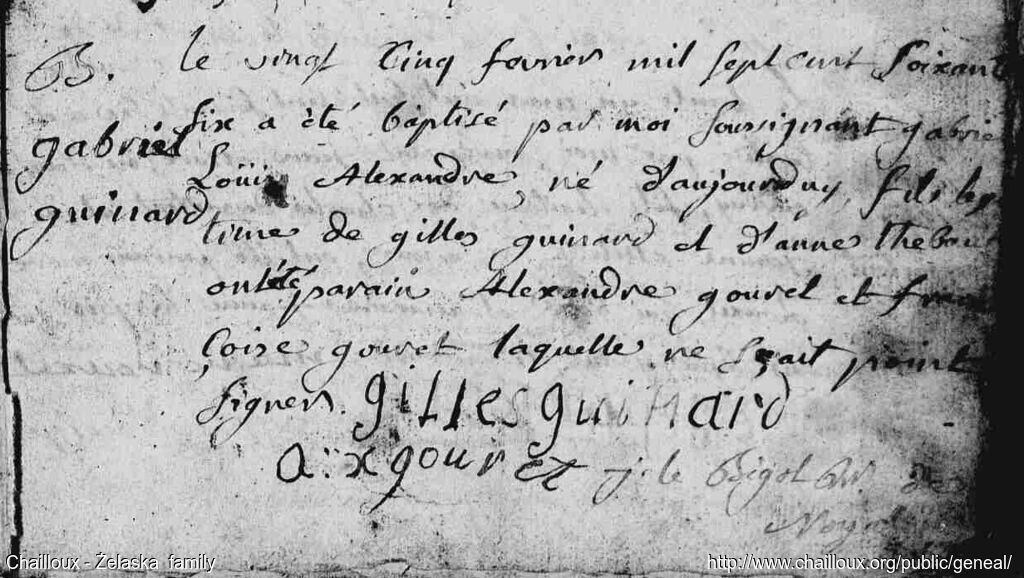 65.
gabriel
guinard
le vingt cinq fevrier mil sept cent soixante
six a été baptisé par moi soussignant gabriel
Loüis Alexandre, né d'aujourduy, fils legi
time de gilles guinard et d'anne thebaut
ont été parain Alexandre gouret et fran
çoise gouret laquelle ne sçait point
signer. gilles guinard
a:x gouret j. le Bigot
Chailloux - Żelaska family
http://www.chailloux.org/public/geneal/